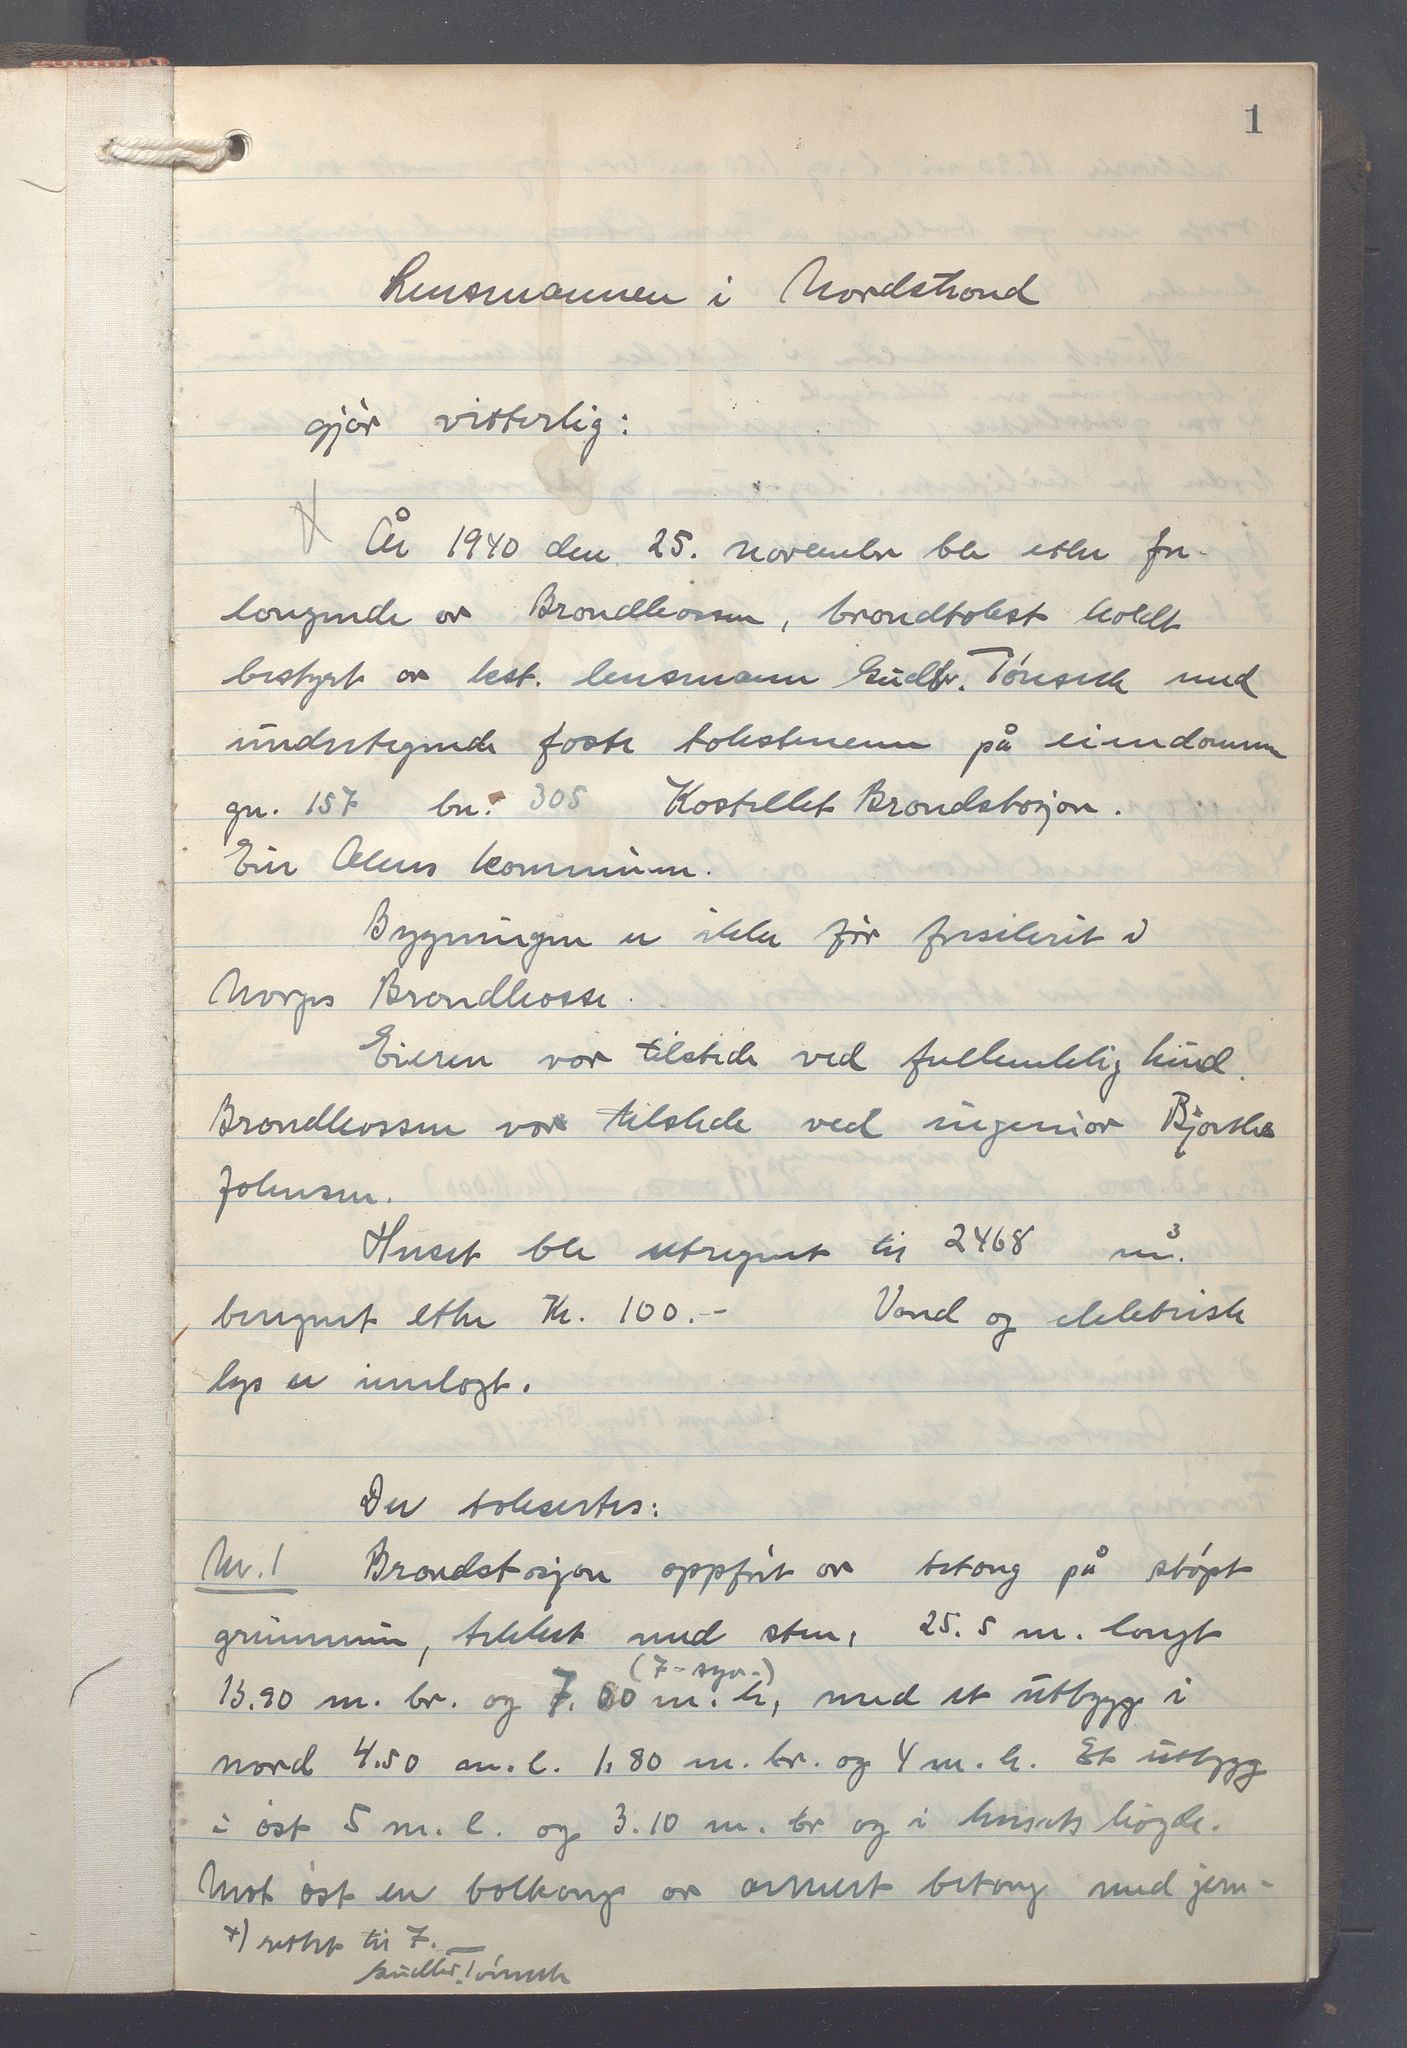 1
Lensmannen i Nordstrand
gjør vitterlig:
År 1940 den 25. november ble etter for-
langende av Brandkassen, brandtakst holdt
bestyrt av kst. lensmann Gudbr. Tønseth med
undertegnede faste takstmenn på eiendommen
gn. 157 bn. 305 Kastellet Brandstasjon.
Eier Akers kommune.
Bygningen er ikke før forsikret i
Norges Brandkasse.
Eieren var tilstede ved fullmektig Lund.
Brandkassen var tilstede ved ingeniør Bjartha
Johnsen.
Huset ble utregnet til 2468 m³.
beregnet etter Kr. 100.- Vand og elektrisk
lys er innlagt.
Der takseres:
Nr. 1 Brandstasjon oppført av betong på støpt
grunnmur, tekket med sten, 25.5 m. langt
(7-syv-)
13.90 m. br. og 7.00 m. h, med et utbygg i
nord 4.50 m. l. 1.80 m. br. og 4 m. h. Et utbygg
i øst 5 m. l. og 3.10 m. br og i husets høgde.
Mot øst en balkong av armert betong med jern-
+) rettet til 7.
Gudbr. Tønseth